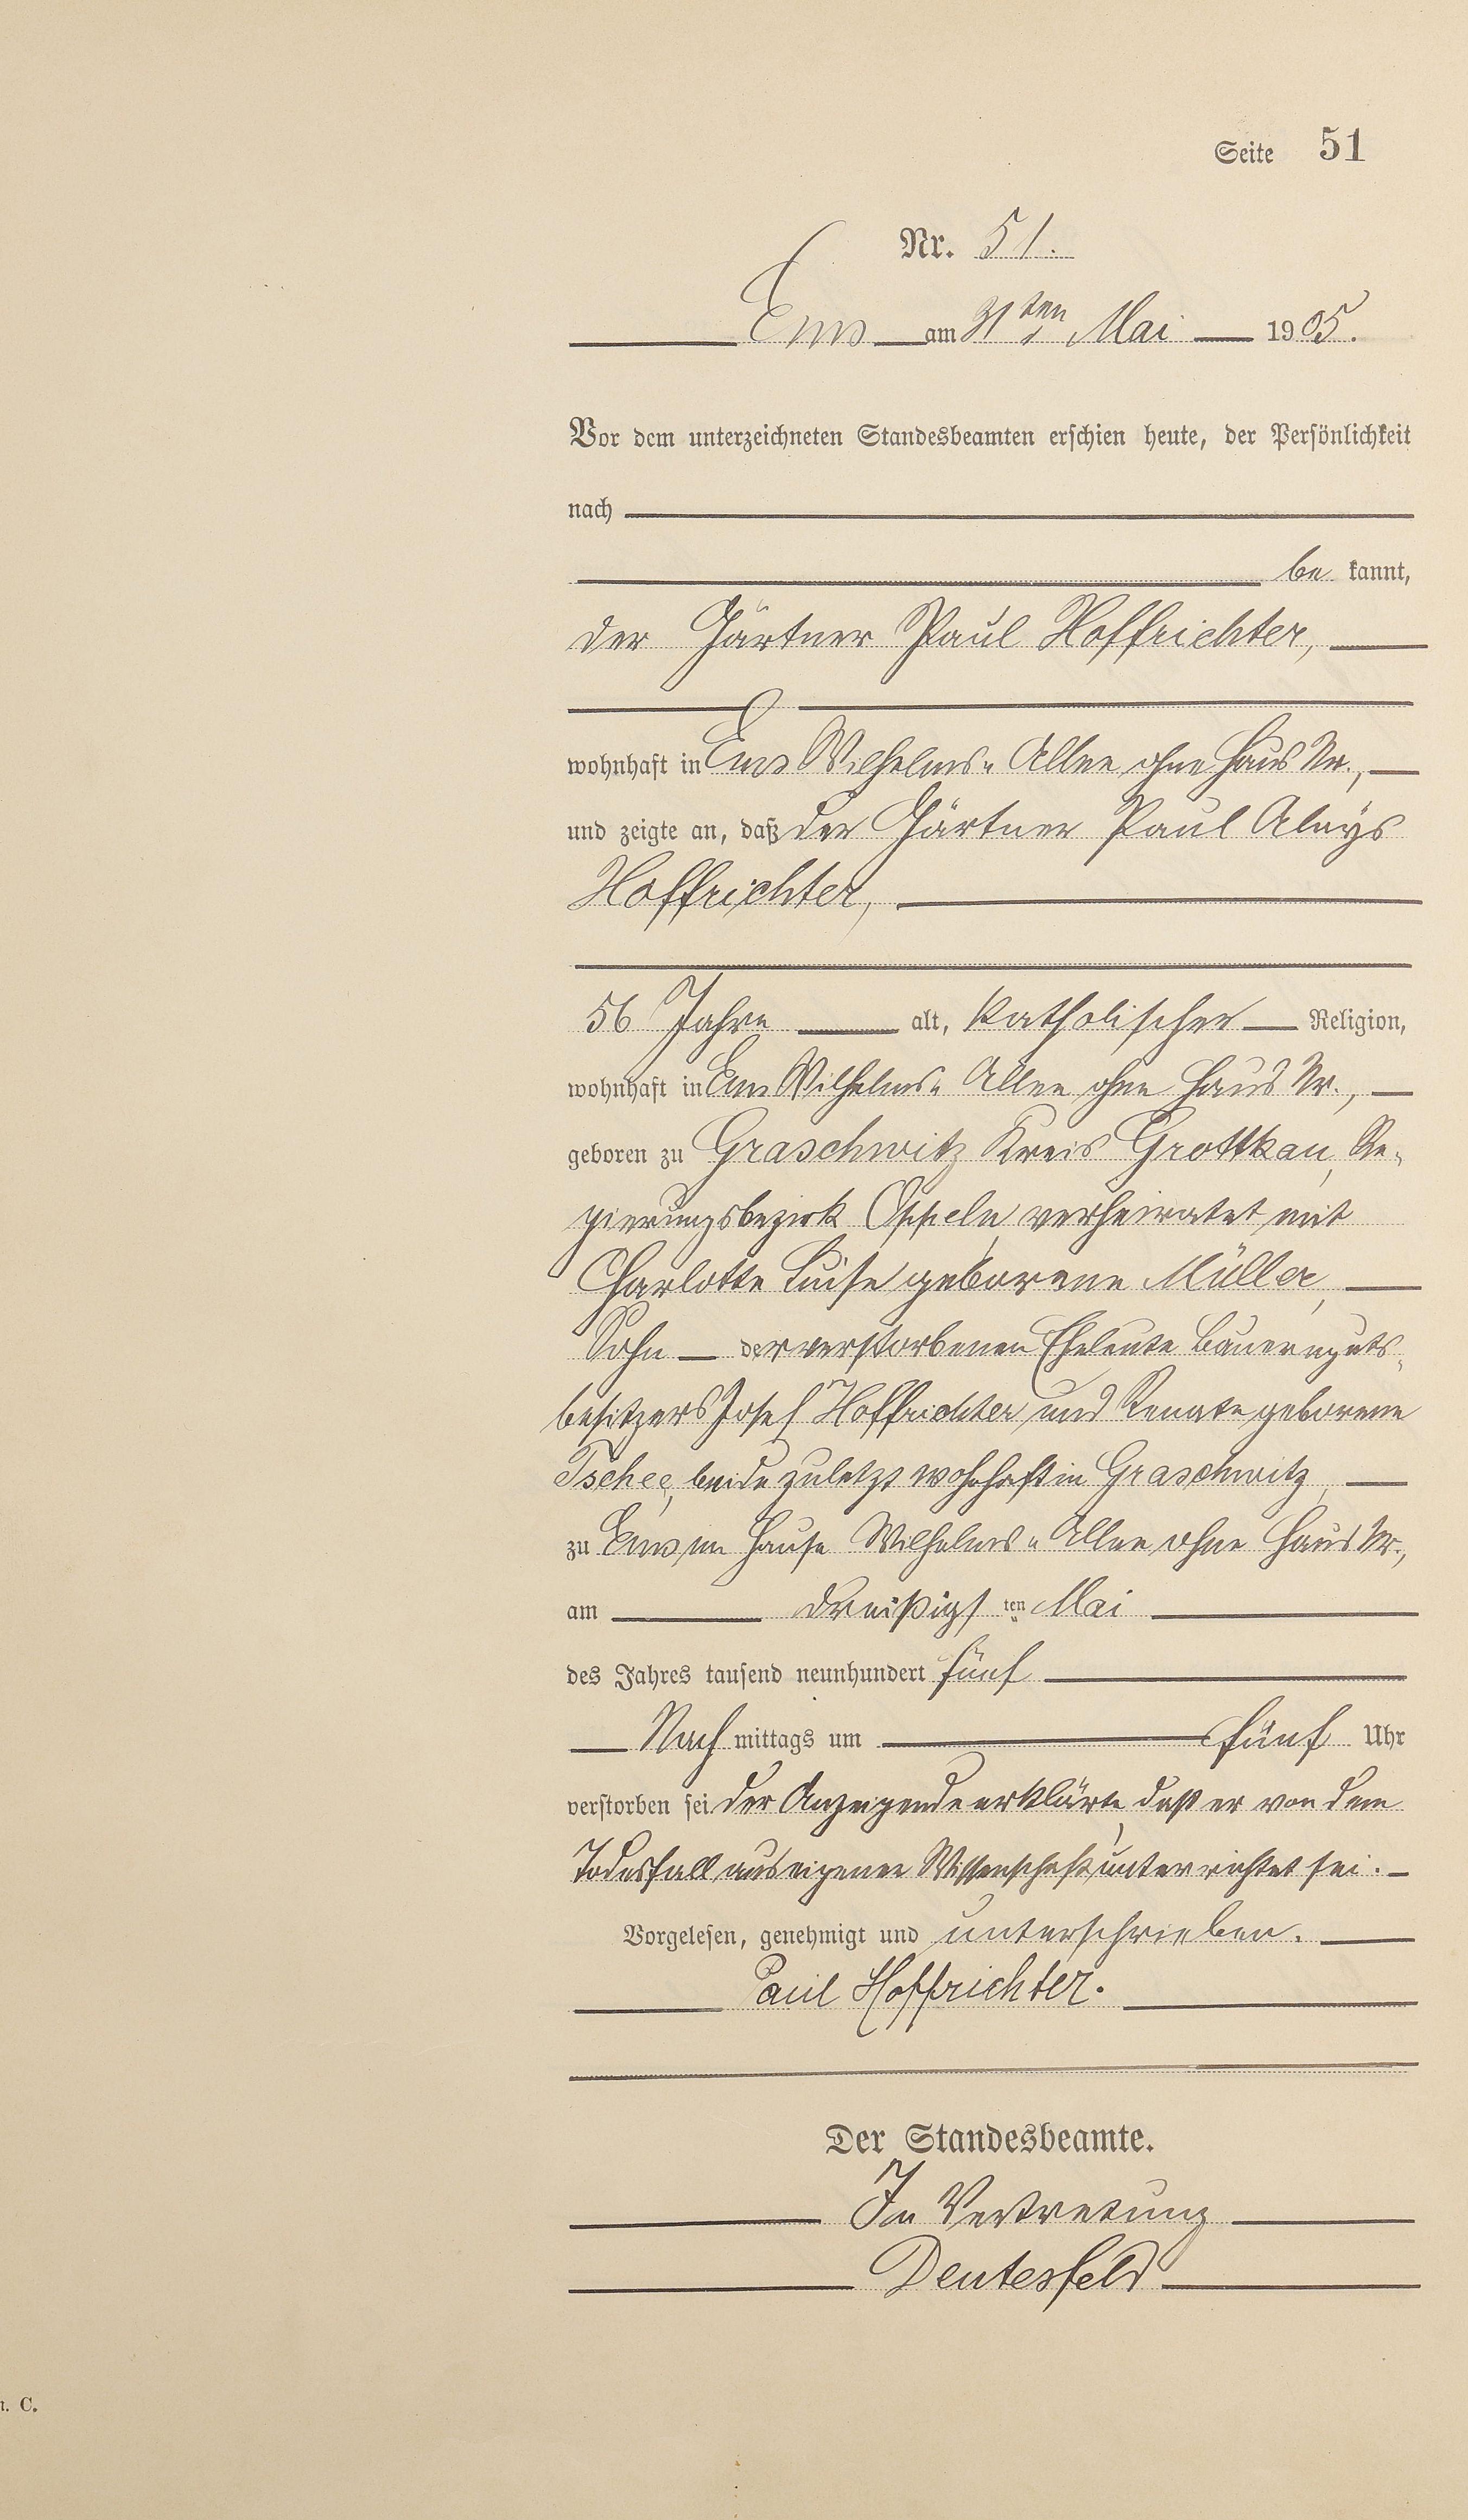 Seite 51
Nr. 51.
Ems am 31ten Mai 1905.
Vor dem unterzeichneten Standesbeamten erschien heute, der Persönlichkeit
nach
be kannt,
der Gärtner Paul Hoffrichter,
wohnhaft in Ems Wilhelms-Allee ohne Haus Nr.,
und zeigte an, daß der Gärtner Paul Aloÿs
Hoffrichter,
56 Jahre alt, katholischer Religion,
wohnhaft in Ems Wilhelms-Allee ohne Haus Nr.,
geboren zu Graschwitz Kreis Grottkau, Re-
gierungsbezirk Oppeln, verheiratet mit
Charlotte Luise geborene Müller,
Sohn der verstorbenen Eheleute Bauernguts-
besitzers Josef Hoffrichter und Renate geborene
Tschee, beide zuletzt wohnhaft in Graschwitz,
zu Ems im Hause Wilhelms-Allee ohne Haus Nr.,
am dreißigsten Mai
des Jahres tausend neunhundert fünf
Nach mittags um fünf Uhr
verstorben sei der Anzeigende erklärte, daß er von dem
Todesfall aus eigener Wissenschaft unterrichtet sei.
Vorgelesen, genehmigt und unterschrieben.
Paul Hoffrichter.
Der Standesbeamte.
In Vertretung
Deutesfeld
C.